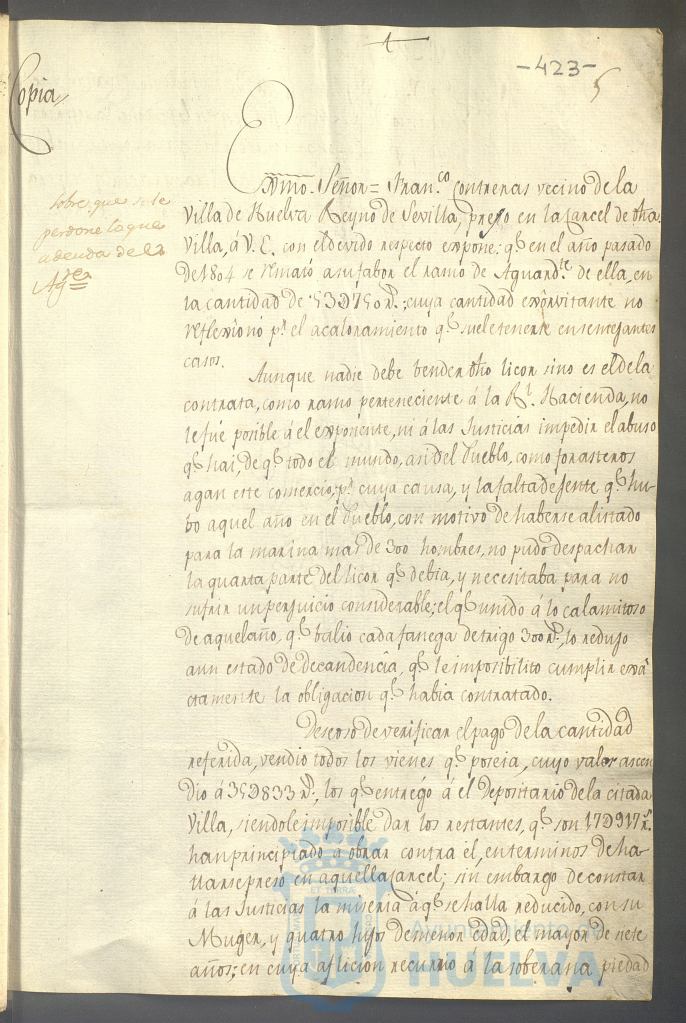 -423-
5
Copia
sobre que se le
perdone lo que
adeuda de el
Agte
Exmo. Señor = Fran.co Contreras vecino de la
Villa de Huelva Reyno de Sevilla, preso en la Carcel de dha.
Villa, á V. E. con el devido respecto expone: qe en el año pasado
de 1804 se remató a su fabor el ramo de Aguard.te de ella, en
la cantidad de 53D750 rs.; cuya cantidad exôrvitante no
reflexionó pr. el acaloramiento qe suele tenerse en semejantes
casos.
Aunque nadie debe bender dho licor sino es el de la
contrata, como ramo perteneciente á la Rl. Hacienda, no
le fué posible á el exponente, ni á las Justicias impedir el abuso
qe hai, de qe todo el mundo, asi del Pueblo, como forasteros
agan este comercio, pr. cuya causa, y la falta de jente qe hu-
bo aquel año en el Pueblo, con motivo de haberse alistado
para la marina mas de 300 hombres, no pudo despachar
la quarta parte del licor qe debia, y necesitaba para no
sufrir un perjuicio considerable; el qe unido á lo calamitoso
de aquel año, qe balio cada fanega de trigo 300 rs., lo redujo
a un estado de decandencîa, qe le imposibilito cumplir exâ-
ctamente la obligacion qe habia contratado.
Deseoso de verificar el pago de la cantidad
referida, vendio todos los vienes qe poseia, cuyo valor ascen
dio á 35D833 rs., los qe entregó á el Depositario de la citada
Villa, siendole imposible dar los restantes, qe son 17D917 rs.
han principiado a obrar contra él, en terminos de ha-
llarse preso en aquella Carcel; sin embargo de constar
á las Justicias la miseria á qe se halla reducido, con su
Muger, y quatro hijos de menor edad, el mayor de siete
años; en cuya aflicion recurrio á la soberana piedad
Ayuntamiento de
HUELVA